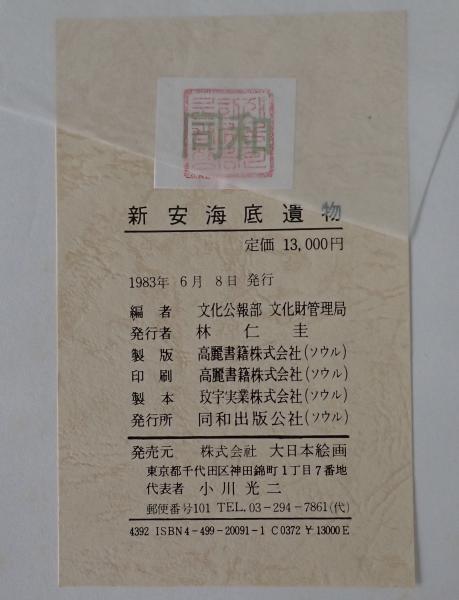 同和
新安海底遺物
定価 13,000円
1983年 6月 8日 発行
編者 文化公報部 文化財管理局
発行者 林仁圭
製版 高麗書籍株式会社(ソウル)
印刷 高麗書籍株式会社(ソウル)
製本 玟宇実業株式会社(ソウル)
発行所 同和出版公社(ソウル)
発売元 株式会社 大日本絵画
東京都千代田区神田錦町1丁目7番地
代表者 小川光二
郵便番号101 TEL.03-294-7861(代)
4392 ISBN4-499-20091-1 C0372 ¥13000E